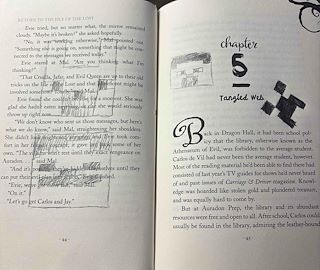 RETURN TO THE ISLE OF THE LOST
Evie tried, but no matter what, the mirror remained
clouds. "Maybe it's broken?" she asked hopefully.
"No, it was working otherwise," Mal pointed out.
"Something else is going on, something that might be con-
nected to the messages we received today."
Evie stared at Mal. "Are you thinking what I'm
thinking?"
"That Cruella, Jafar, and Evil Queen are up to their old
tricks on the Isle of the Lost and that
involved somehow
Evie found she couldn't for a moment. She was
glad she hadn't eaten she would seriously
throw up right now.
"We don't know who sent those messages, but here's
what we do know," said Mal, straightening her shoulders.
She didn't
fort in her
"The
Auradon said Mal.
"And it's until they
can put their
"Evie, said Mal.
"On it."
"Let's go get Carlos and Jay."
44
chapter
5
Tangled Web
Back in Dragon Hall, it had been school pol-
icy that the library, otherwise known as the
Athenaeum of Evil, was forbidden to the average student.
Carlos de Vil had never been the average student, however.
Most of the reading material he'd been able to find there had
consisted of last year's TV guides for shows he'd never heard
of and past issues of Carriage & Driver magazine. Knowl-
edge was hoarded like stolen gold and plundered treasure,
and was equally hard to come by.
But at Auradon Prep, the library and its abundant
resources were free and open to all. After school, Carlos could
usually be found in the library, admiring the leather-bound
45